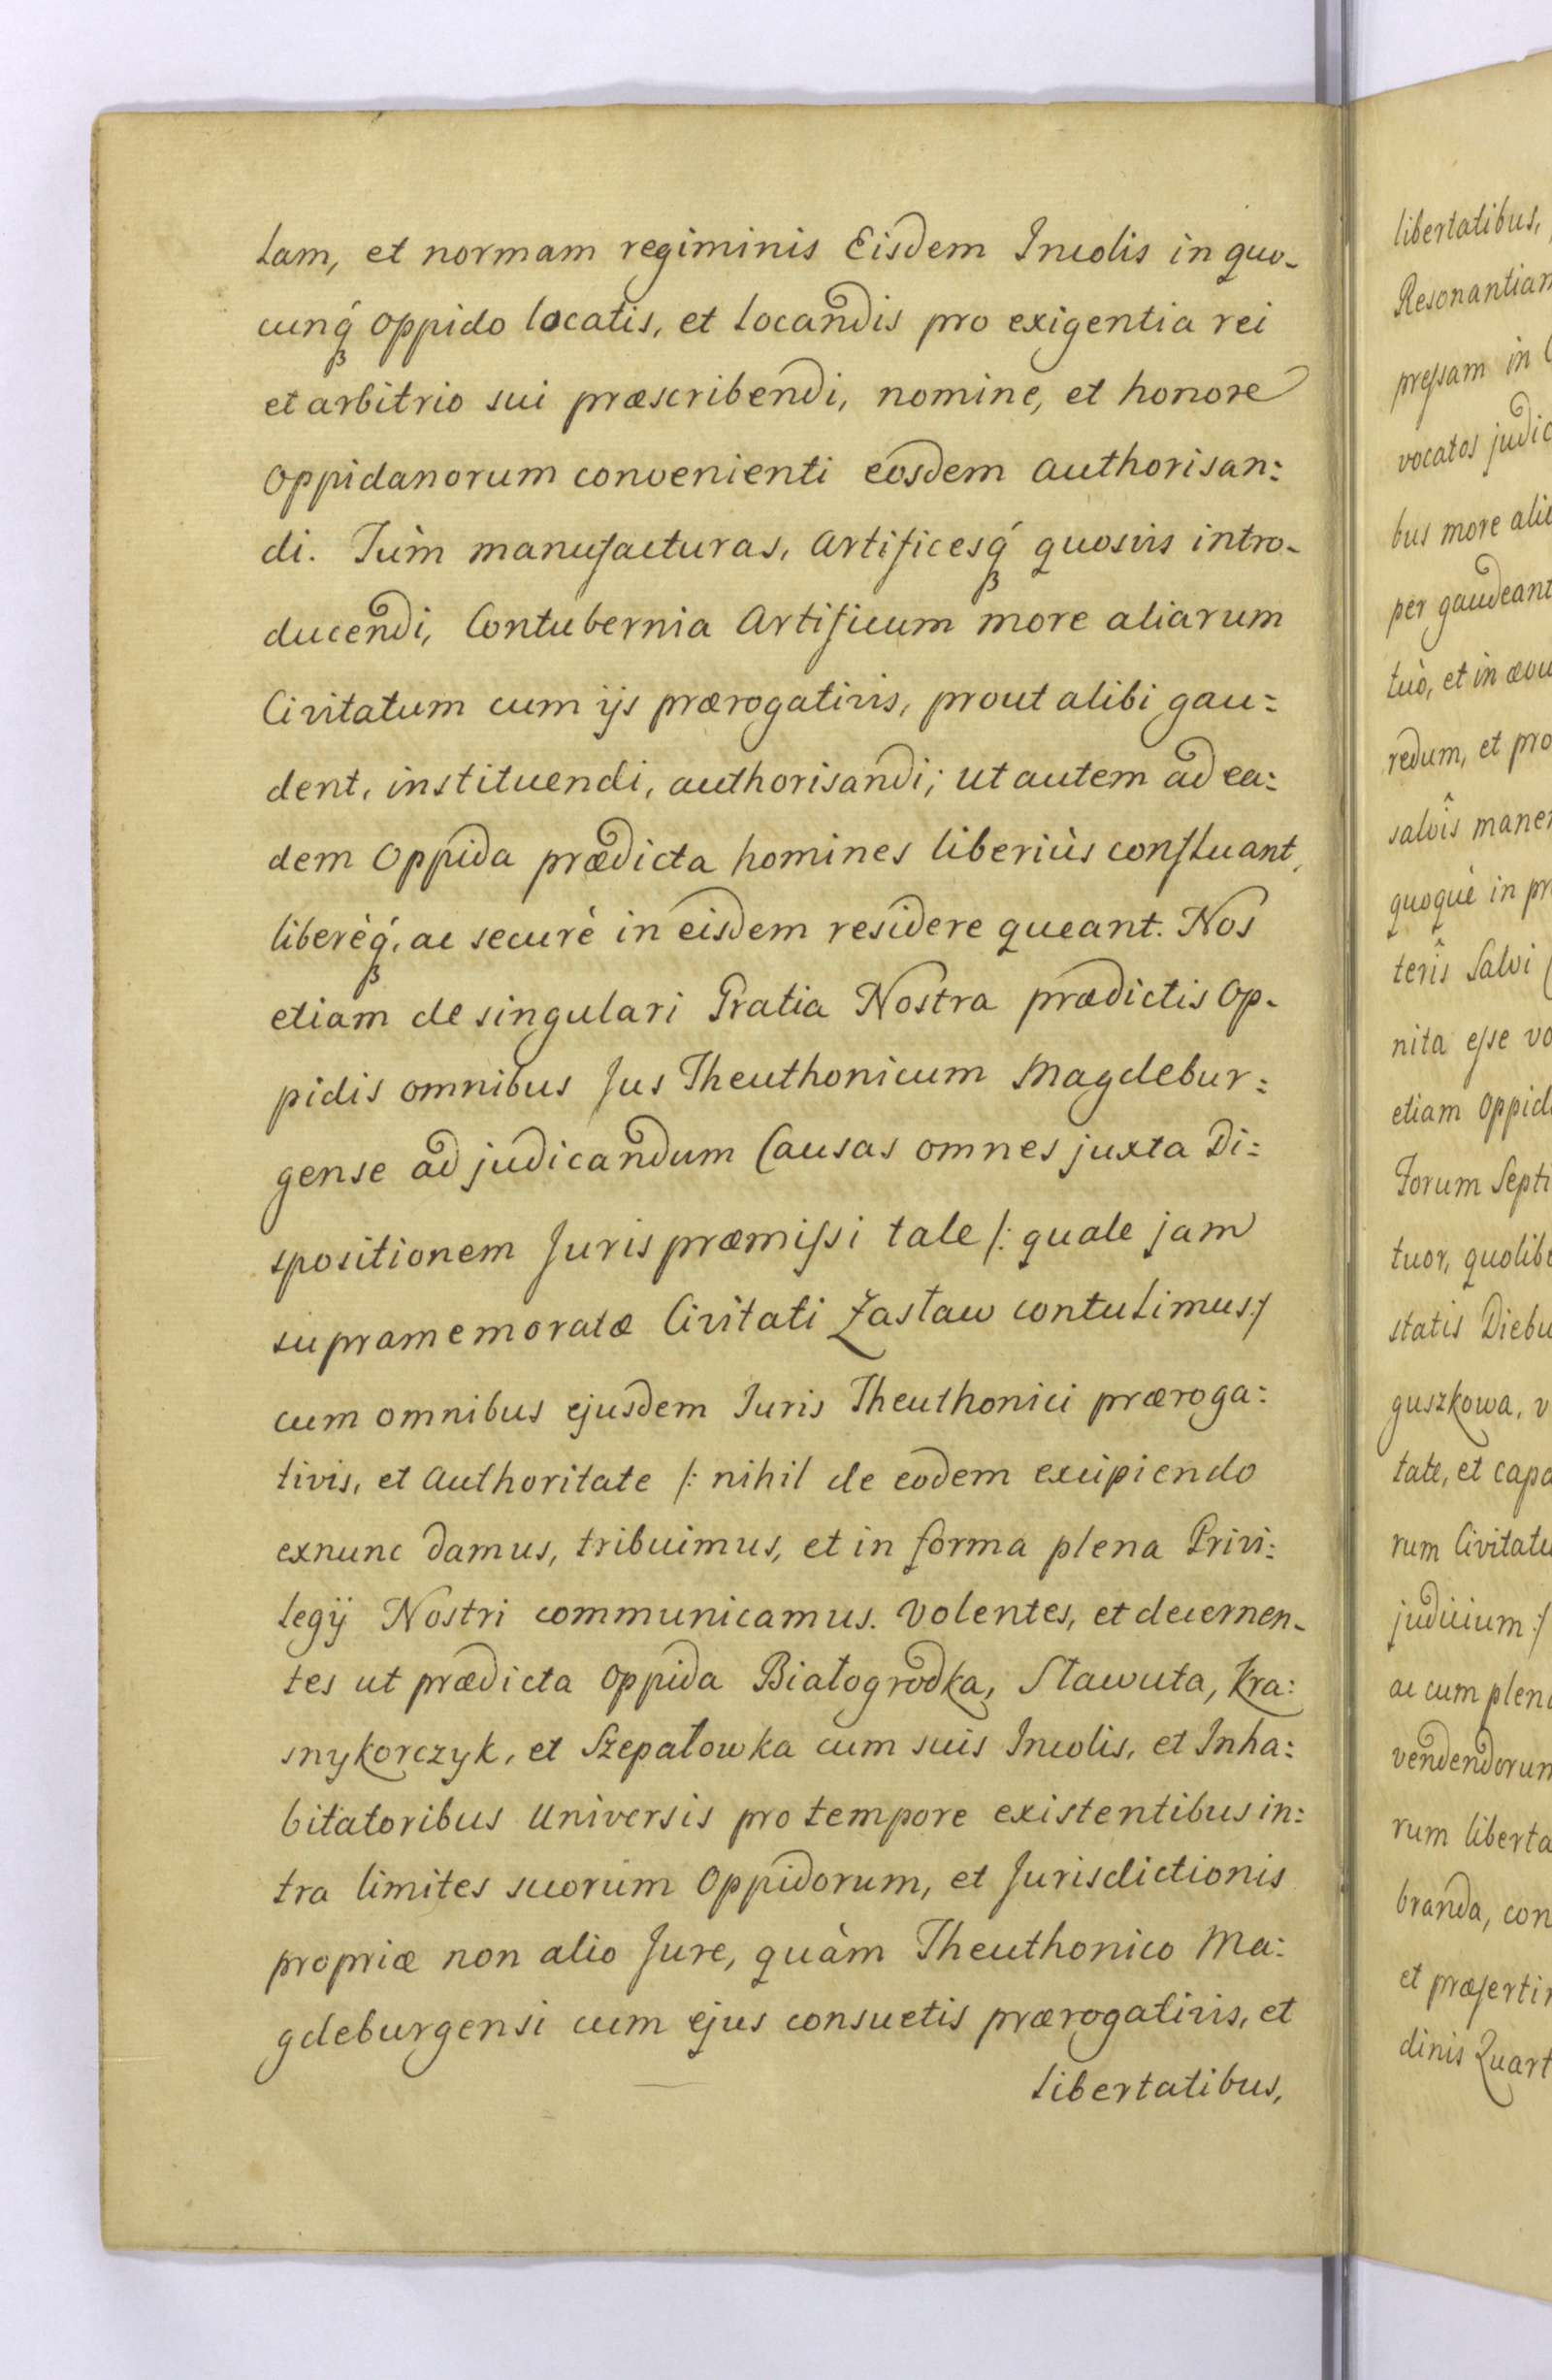 lam, et normam regiminis Eisdem Incolis in quo-
cunqꝫ oppido locatis, et locandis pro exigentia rei
et arbitrio sui præscribendi, nomine, et honore
oppidanorum convenienti eosdem authorisan:
di. Tùm manufacturas, Artificesqꝫ quosvis intro-
ducendi, Contubernia Artificum more aliarum
Civitatum cum ijs prærogativis, prout alibi gau:
dent, instituendi, authorisandi; ut autem ad ea:
dem Oppida prædicta homines liberiùs confluant,
liberèqꝫ, ac securè in eisdem residere queant. Nos
etiam de singulari Gratia Nostra prædictis Op-
pidis omnibus Jus Theuthonicum Magdebur:
gense ad judicandum Causas omnes juxta Di:
spositionem Juris præmiſsi tale /: quale jam
supramemoratæ Civitati Zasław contulimus :/
cum omnibus ejusdem Juris Theuthonici præroga:
tivis, et Authoritate /: nihil de eodem excipiendo
exnunc damus, tribuimus, et in forma plena Privi:
legij Nostri communicamus. Volentes, et decernen-
tes ut prædicta Oppida Białogrodka, Sławuta, Kra:
snykorczyk, et Szepałowka cum suis Incolis, et Inha:
bitatoribus Universis pro tempore existentibus in:
tra limites suorum Oppidorum, et Jurisdictionis
propriæ non alio Jure, quàm Theuthonico Ma:
gdeburgensi cum ejus consuetis prærogativis, et
libertatibus,
libertatibus,
Resonantiam
preſsam in
vocatos judic
bus more alie
per gaudeant
tuò, et in ævu
redum, et pro
salvîs maner
quoquè in pr
terîs Salvi
nita eſse vo
etiam Oppid
Forum Septi
tuor, quolibe
statis Diebu
guszkowa, v
tate, et capa
rum Civitatu
judicium :/
ac cum plena
vendendorum
rum liberta
branda, con
et præſertim
dinis Quart